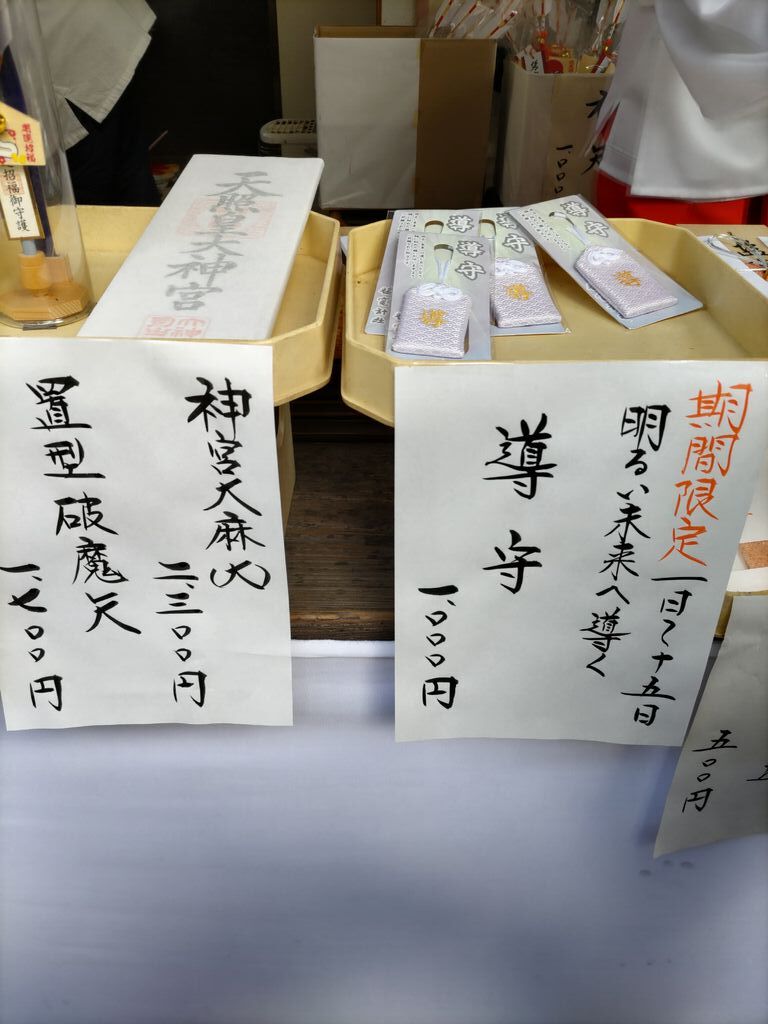 期間限定
一日〜十五日
明るい未来へ導く
導守
一、〇〇〇円
神宮大麻(大)
二、三〇〇円
置型破魔矢
一、七〇〇円
五〇〇円
天照皇大神宮
導守
導
導守
導守
導
導守
導
招福御守護
一、〇〇〇